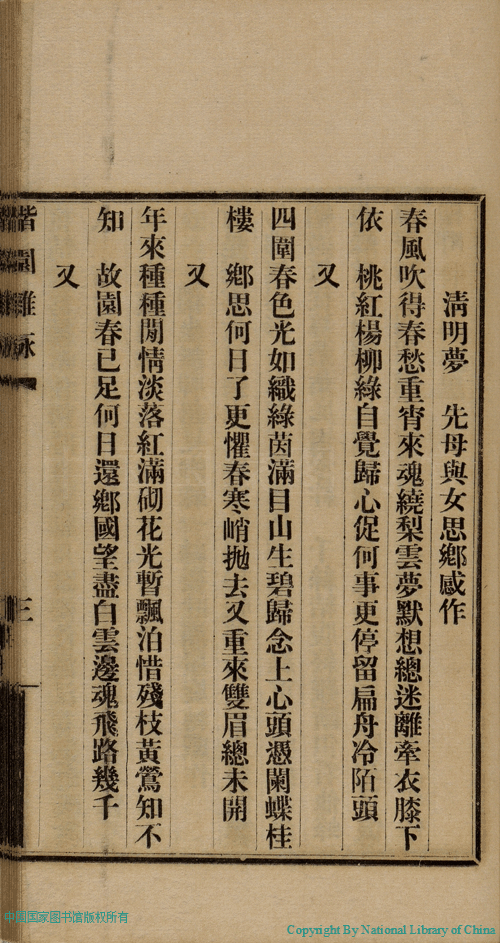 清明夢　先母與女思鄉感作
春風吹得春愁重宵來魂繞梨雲夢默想總迷離牽衣膝下
依　桃紅楊柳綠自覺歸心促何事更停留扁舟冷陌頭
又
四圍春色光如織綠茵滿目山生碧歸念上心頭憑闌蝶桂
樓　鄉思何日了更懼春寒峭拋去又重來雙眉總未開
又
年來種種閒情淡落紅滿砌花光暫飄泊惜殘枝黃鶯知不
知　故園春已足何日還鄉國望盡白雲邊魂飛路幾千
又
三
中国国家图书馆版权所有
Copyright By National Library of China